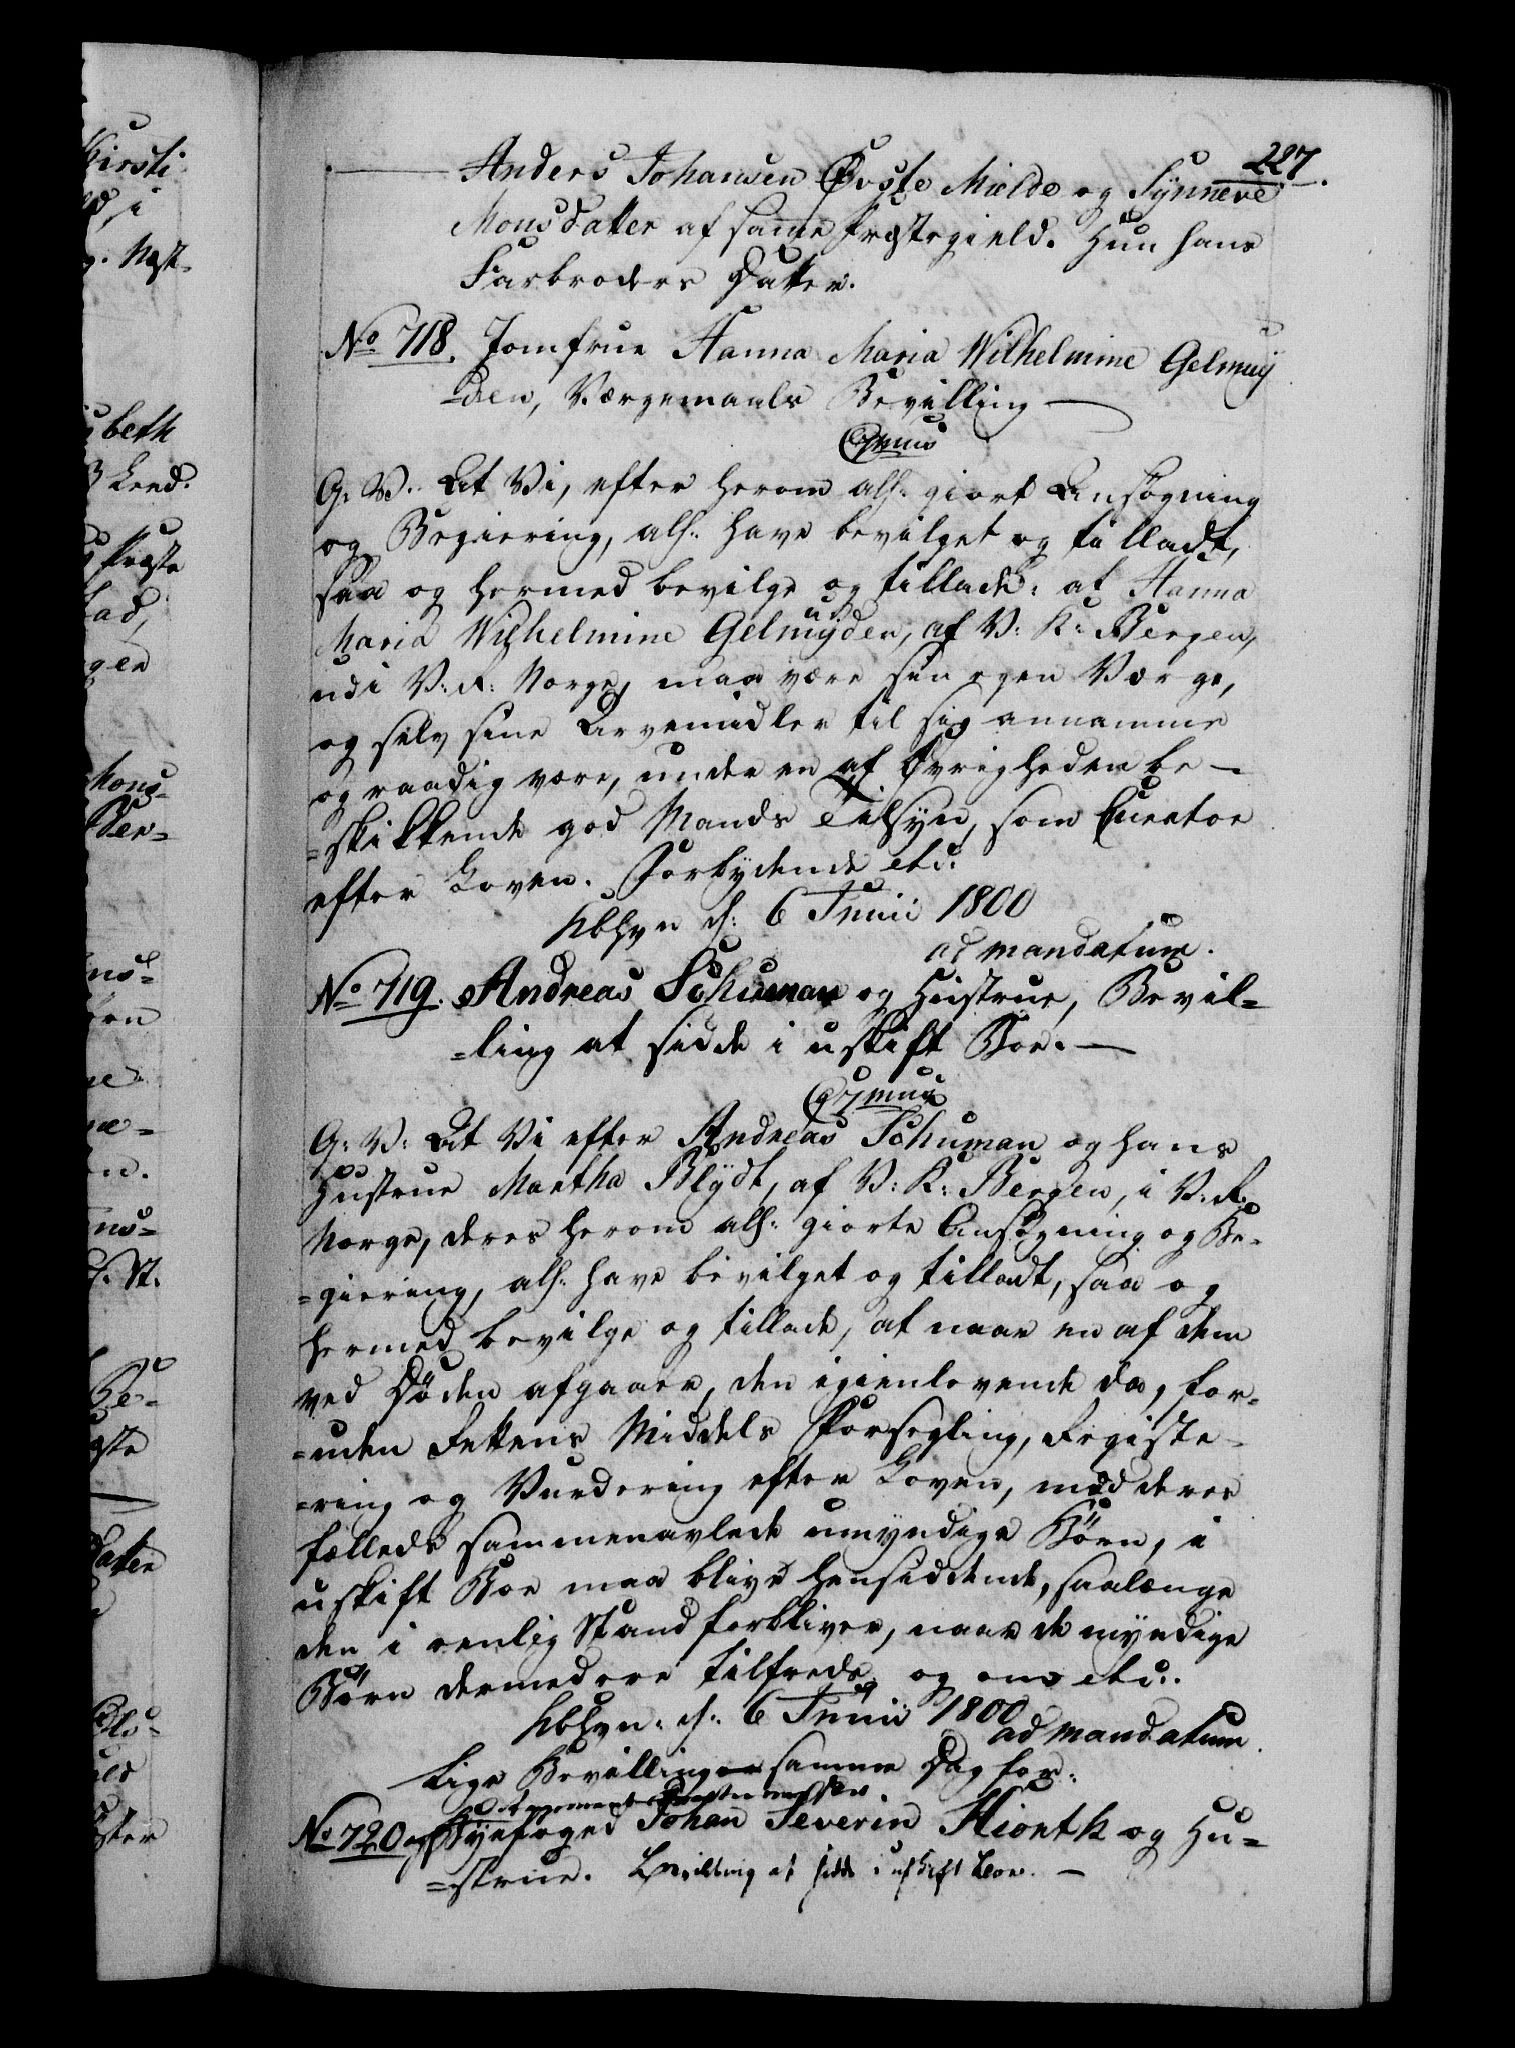 227.
Anders Johansen Øvste Mielde og Synneve
Monsdatter af samme Præstegield. Hun hans
Farbroders Datter.
No 718. Jomfrue Hanna Maria Wilhelmine Gelmuy
=den, Værgemaals Bevilling —
G: V: At Vi, efter herom all: giort Ansøgning
og Begiering, all: have bevilget og tilladt,
saa og hermed bevilge og tillade: at Hanna
Maria Wilhelmine Gelmuyden, af V: K: Bergen,
udi V: R: Norge, maa være sin egen Værge,
og selv sine Arvemidler til sig annamme
og raadig være, under en af Øvrigheden be-
=skikkende god Mands Tilsyn, som Curator
efter Loven. Forbydende etc:
Kbhvn d: 6 Junii 1800
ad mandatum.
No 719. Andreas Schuman og Hustrue, Bevil=
=ling at sidde i uskift Boe. —
G: V: At Vi efter Andreas Schuman og hans
Hustrue Martha Blydt, af V: K: Bergen, i V: R:
Norge, deres herom all: giorte Ansøgning og Be-
=giering, all: have bevilget og tilladt, saa og
hermed bevilge og tillade, at naar en af dem
ved Døden afgaaer, den igienlevende da, for-
=uden Fellens Middels Forsegling, Registe-
=ring og Vurdering efter Loven, med deres
fælleds sammenavlede umyndige Børn, i
uskift Boe maa blive hensiddende, saalænge
den i eenlig Stand forbliver, naar de myndige
Børn dermed ere tilfreds, og om etc:
Kbhvn: d: 6 Junii 1800
ad mandatum.
Lige Bevilling samme Dag for:
No 720 Byefoged Johan Severin Hiorth og Hu=
=strue. Bevilling at sidde i uskift Boe. —